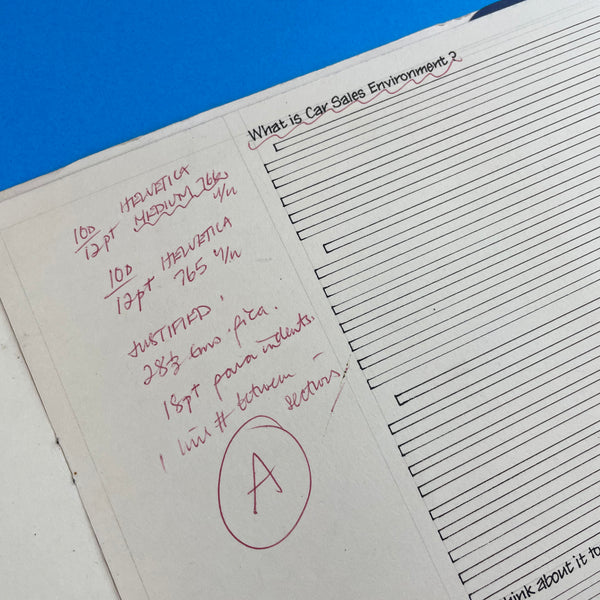 What is Car Sales Environment?
10D HELVETICA
12pt MEDIUM 766 U/LC
10D HELVETICA
12pt 765 U/LC
JUSTIFIED
28½ Ems pica.
18pt para indents.
1 line # between
sections
A
think about it to